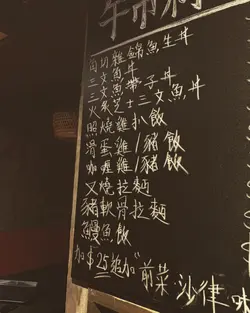 角切雜錦魚生丼
三文魚丼
三文魚帶子丼
火炙芝士三文魚丼
照燒雞扒飯
滑蛋雞/豬飯
咖喱雞/豬飯
叉燒拉麵
豬軟骨拉麵
鰻魚飯
加$25追加"前菜·沙律·味